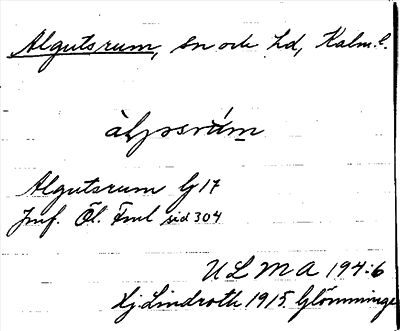 Algutsrum, sn och hd, Kalm. l.
àl̥gsrúm
Algutsrum G 17
Jmf. Öl. Fml sid 304
ULMA 194:6
Hj. Lindroth 1915 Glömminge